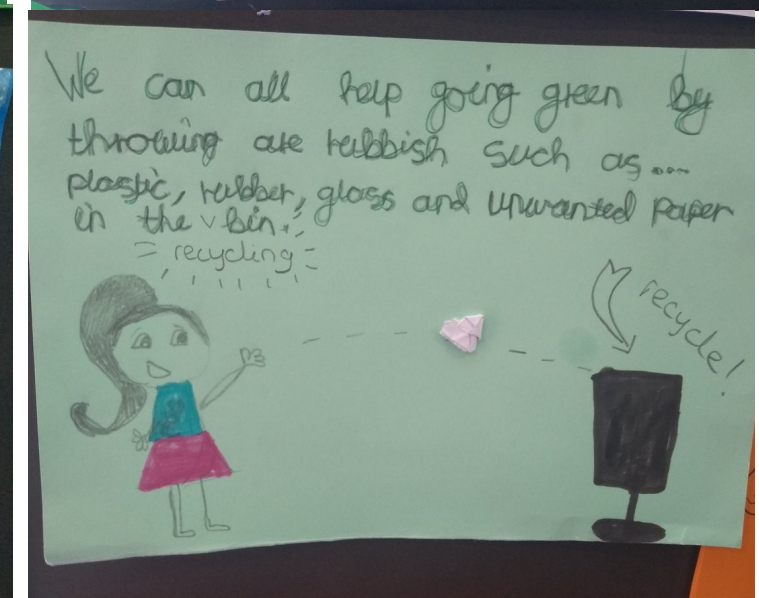 We can all help going green by
throwing are rubbish such as....
plastic, rubber, glass and unwanted paper
in the v bin.!
recycling
recycle!